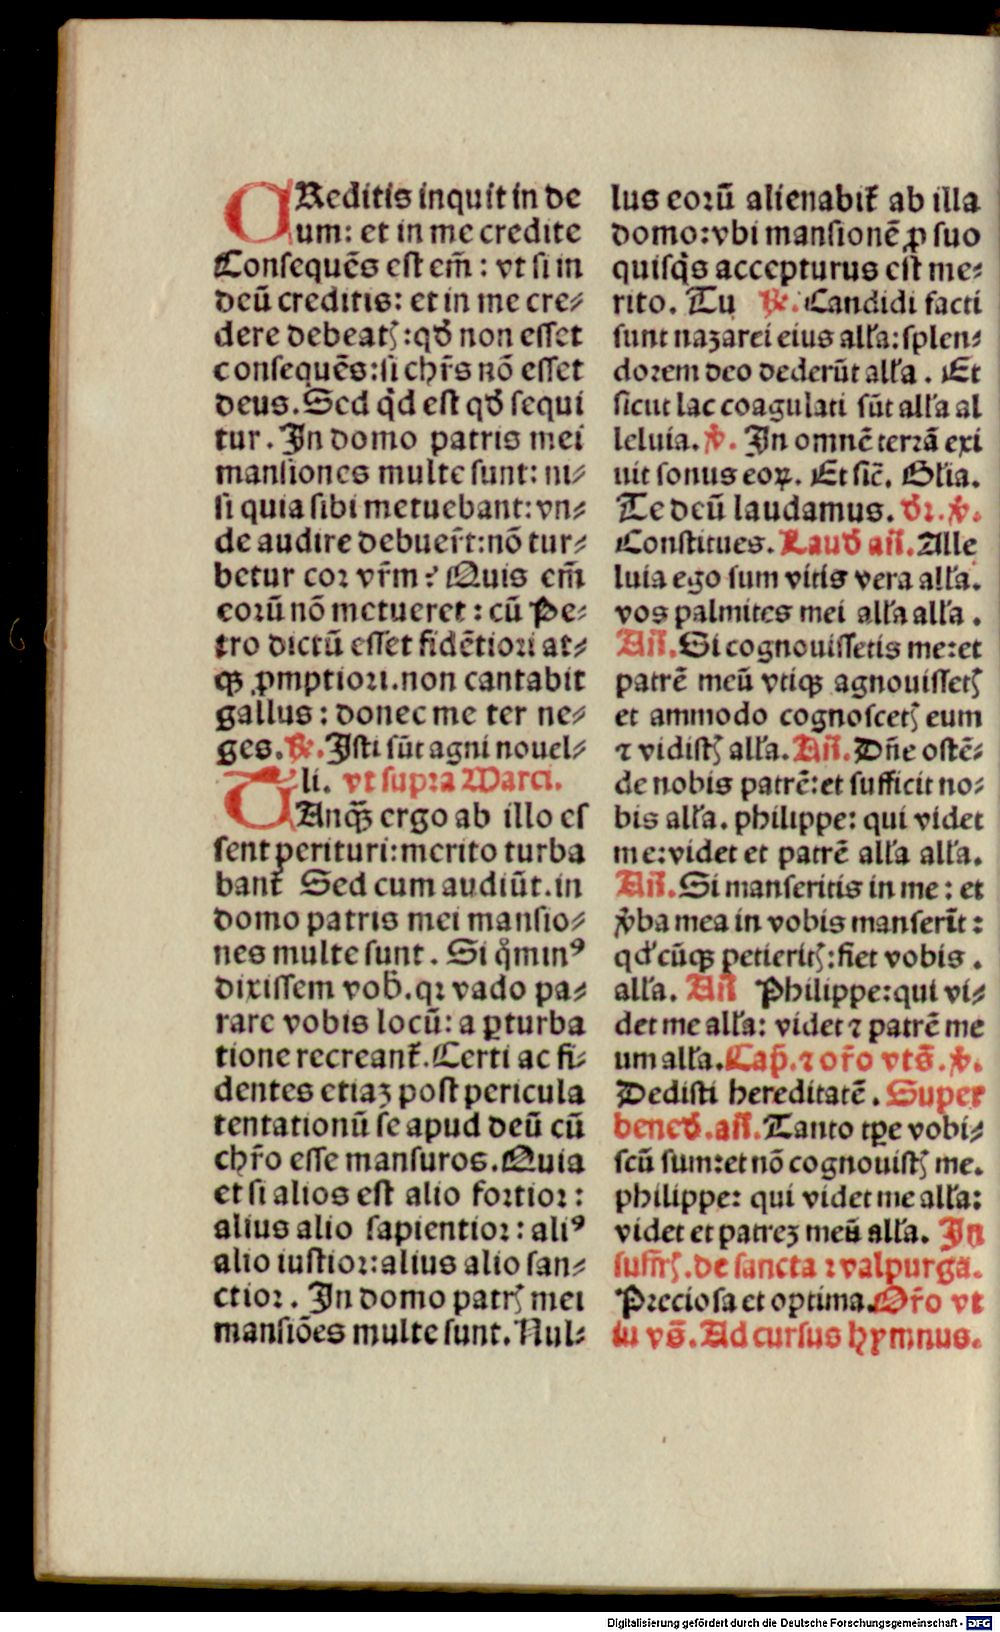 CReditis inquit in de
um: et in me credite
Consequēs est em̄: vt si in
deū creditis: et in me cre⸗
dere debeatꝭ: qđ non esset
consequēs: si chr̄s nō esset
deus. Sed qͥd est qđ sequi
tur. In domo patris mei
mansiones multe sunt: ni⸗
si quia sibi metuebant: vn⸗
de audire debuer̄t: nō tur⸗
betur cor vr̄m? Quis em̄
eorū nō metueret: cū Pe⸗
tro dictū esset fidētiori at⸗
qꝫ ꝓmptiori. non cantabit
gallus: donec me ter ne⸗
ges. ℟. Isti sūt agni nouel⸗
li. vt supra Marci.
TAnqꝫ ergo ab illo es
sent perituri: merito turba
bant᷑ Sed cum audiūt. in
domo patris mei mansio⸗
nes multe sunt. Si qͦminꝰ
dixissem vob̄. qꝛ vado pa⸗
rare vobis locū: a ꝑturba
tione recreant᷑. Certi ac fi⸗
dentes etiaꝫ post pericula
tentationū se apud deū cū
chr̄o esse mansuros. Quia
et si alios est alio fortior:
alius alio sapientior: aliꝰ
alio iustior: alius alio san⸗
ctior. In domo patrꝭ mei
mansiōes multe sunt. Nul⸗
lus eorū alienabit᷑ ab illa
domo: vbi mansionē ꝓ suo
quisqͥs accepturus est me⸗
rito. Tu ℟. Candidi facti
sunt nazarei eius alła: splen⸗
dorem deo dederūt alła. Et
sicut lac coagulati sūt alła al
leluia. ℣. In omnē terrā exi
uit sonus eoꝝ. Et sic̄. Głia.
Te deū laudamus. v̄r. ℣.
Constitues. Lauđ an̄. Alle
luia ego sum vitis vera alła.
vos palmites mei alła alła.
An̄. Si cognouissetis me: et
patrē meū vtiqꝫ agnouissetꝭ
et ammodo cognoscetꝭ eum
⁊ vidistꝭ alła. An̄. Dn̄e ostē⸗
de nobis patrē: et sufficit no⸗
bis alła. philippe: qui videt
me: videt et patrē alła alła.
An̄. Si manseritis in me: et
v̄ba mea in vobis manser̄it:
qđcūqꝫ petieritꝭ: fiet vobis.
alła. An̄ Philippe: qui vi⸗
det me alła: videt ⁊ patrē me
um alła. Cap̄. ⁊ or̄o vts̄. ℣.
Dedisti hereditatē. Super
beneđ. an̄. Tanto tꝑe vobi⸗
scū sum: et nō cognouistꝭ me.
philippe: qui videt me alła:
videt et patreꝫ meū alła. In
suffrꝭ. de sancta ⁊ valpurga.
Preciosa et optima. Or̄o vt
iu vs̄. Ad cursus hymnus.
Digitalisierung gefördert durch die Deutsche Forschungsgemeinschaft - DFG